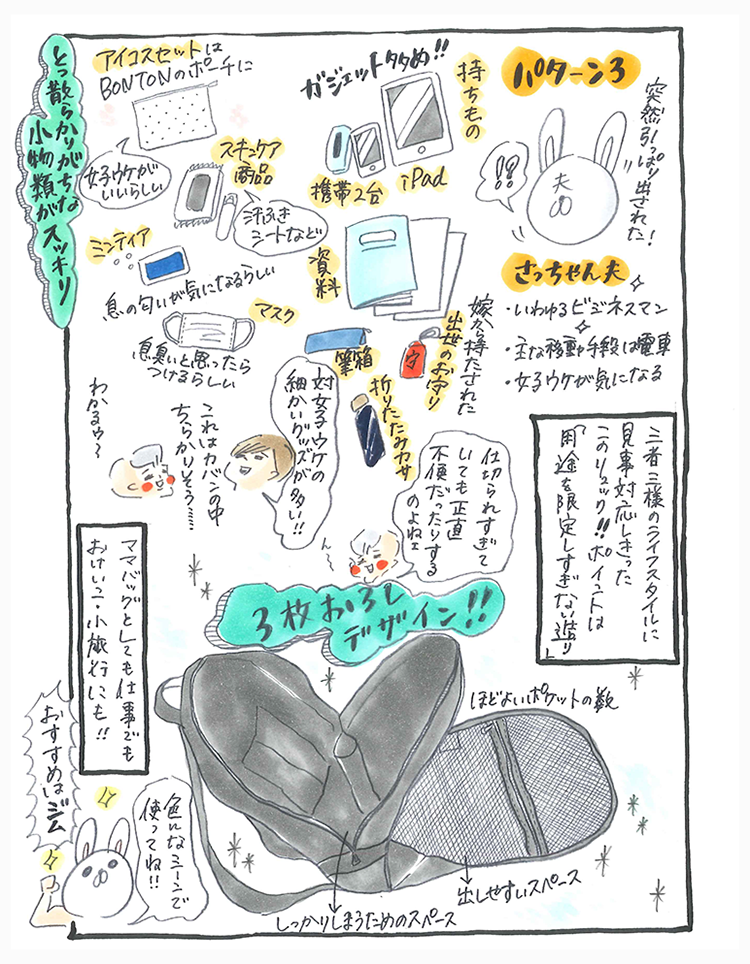 パターン3
突然引っぱり出された!
!?
夫
さっちゃん夫
・いわゆるビジネスマン
・主な移動手段は電車
・女子ウケが気になる
持ちもの
ガジェットタタめ!!
iPad
携帯2台
資料
嫁から持たされた
出世のお守り
守
筆箱
折りたたみカサ
アイコスセットは
BONTONのポーチに
女子ウケが
いいらしい
スキンケア
商品
汗ふき
シートなど
ミンティア
息の匂いが気になるらしい
マスク
息臭いと思ったら
つけるらしい
とっ散らかりがちな
小物類が
スッキリ
対女子ウケの
細かいグッズが多い!!
これはカバンの中
ちらかりそう……
わかるゥ〜
三者三様のライフスタイルに
見事対応しきった
このリュック!!ポイントは
「用途を限定しすぎない造り」
仕切られすぎて
いても正直
不便だったりする
のよねェ
ん〜
3枚おろし
デザイン!!
ママバッグとしても仕事でも
おけいこ・小旅行にも!!
ほどよいポケットの数
出しやすいスペース
しっかりしまうためのスペース
おすすめはジム
色んなシーンで
使ってね!!